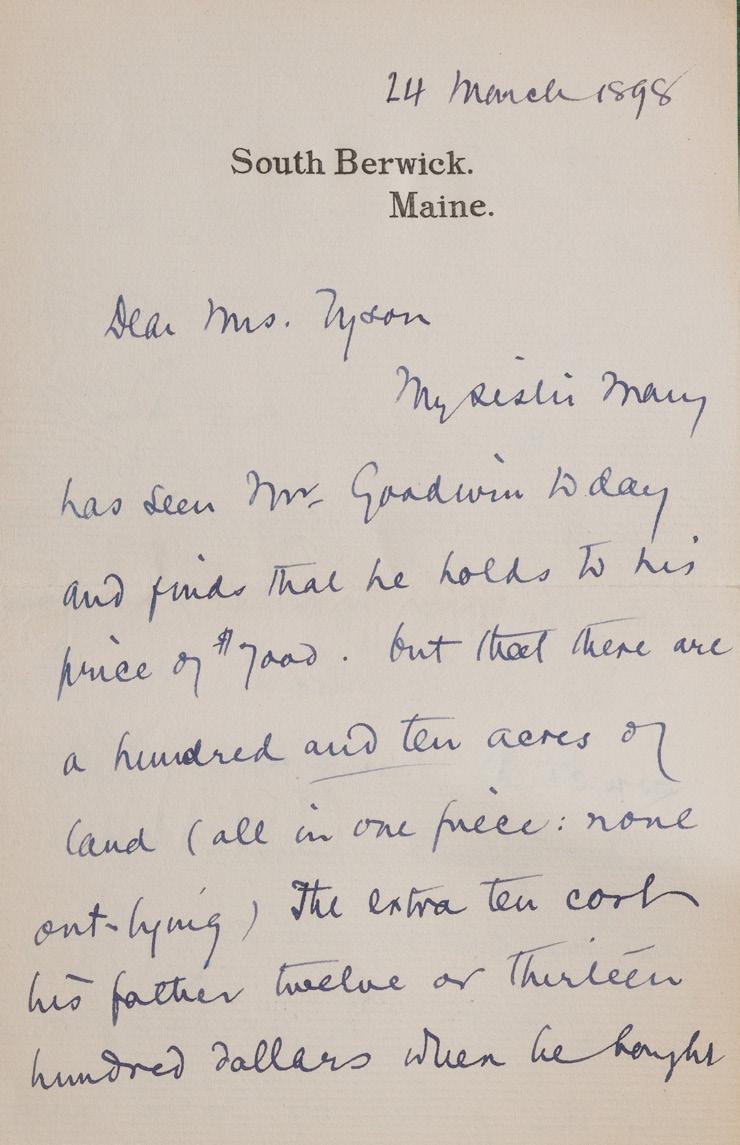 24 March 1898
South Berwick.
Maine.
Dear Mrs. Tyson
My sister Mary
has seen Mr. Goodwin to day
and finds that he holds to his
price of $7000. but that there are
a hundred and ten acres of
land (all in one piece: none
out-lying) The extra ten cost
his father twelve or thirteen
hundred dollars when he bought